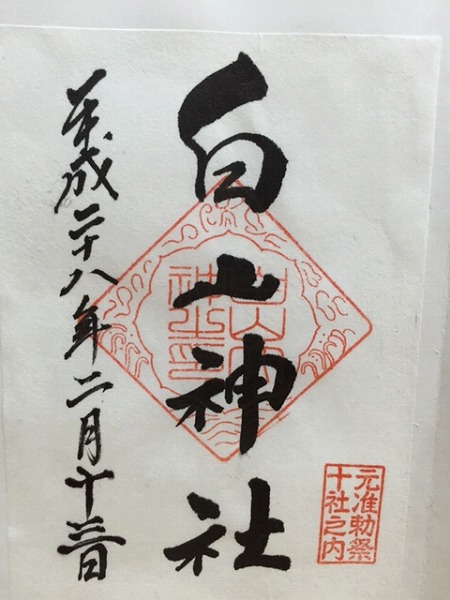 白山神社
元准勅祭
十社之内
平成二十八年二月十三日